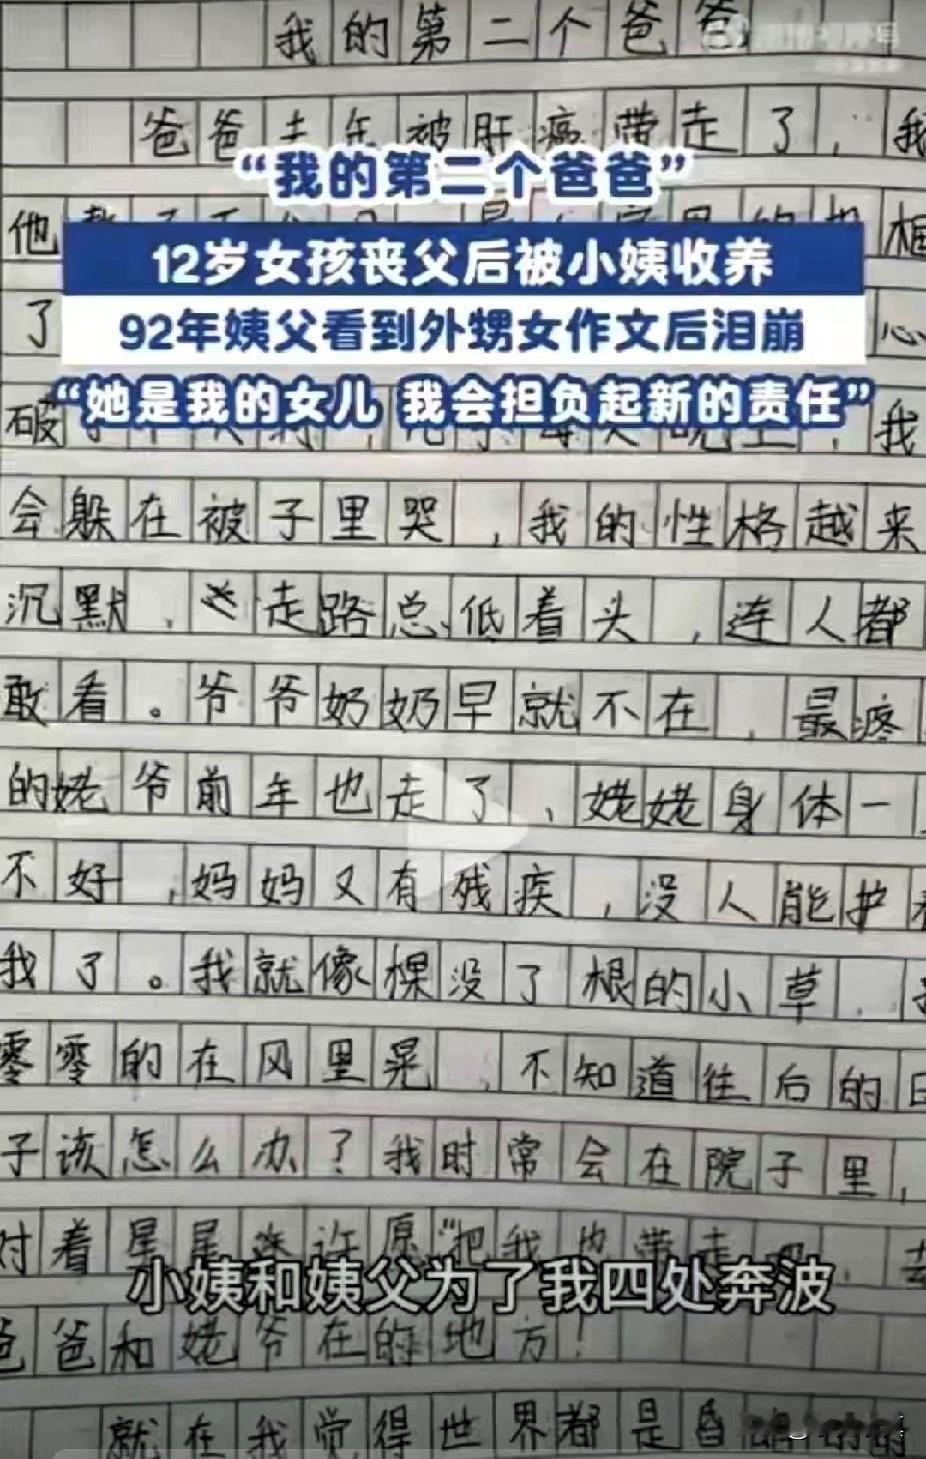 我的第二个爸爸
爸爸去年被肝癌带走了，我
“我的第二个爸爸”
他
12岁女孩丧父后被小姨收养
了
92年姨父看到外甥女作文后泪崩
“她是我的女儿 我会担负起新的责任”
破
我
会躲在被子里哭，我的性格越来
沉默，走路总低着头，连人都
敢看。爷爷奶奶早就不在，最疼
的姥爷前年也走了、姥姥身体一
不好，妈妈又有残疾，没人能护
我了。我就像棵没了根的小草，
零零的在风里晃，不知道往后的日
子该怎么办？我时常会在院子里，
对着星星许愿“把我也带走吧，去
小姨和姨父为了我四处奔波
爸爸和姥爷在的地方！
就在我觉得世界都是昏暗的